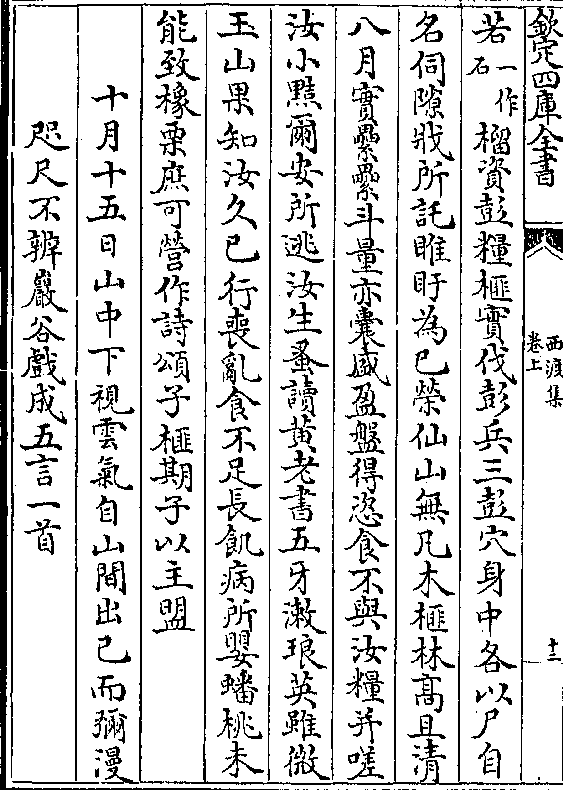 欽定四庫全書
西渡集
卷上
十二
若一作石榴資彭糧榧實伐彭兵三彭穴身中各以尸自
名伺隙戕所託睢盱為已榮仙山無凡木榧林髙且清
八月實纍纍斗量亦囊盛盈盤得恣食不與汝糧并嗟
汝小黠爾安所逃汝生蚤讀黄老書五牙漱琅英雖微
玉山果知汝久已行喪亂食不足長飢病所嬰蟠桃未
能致橡栗庶可營作詩頌子榧期子以主盟
十月十五日山中下視雲氣自山間出已而彌漫
咫尺不辨巖谷戲成五言一首